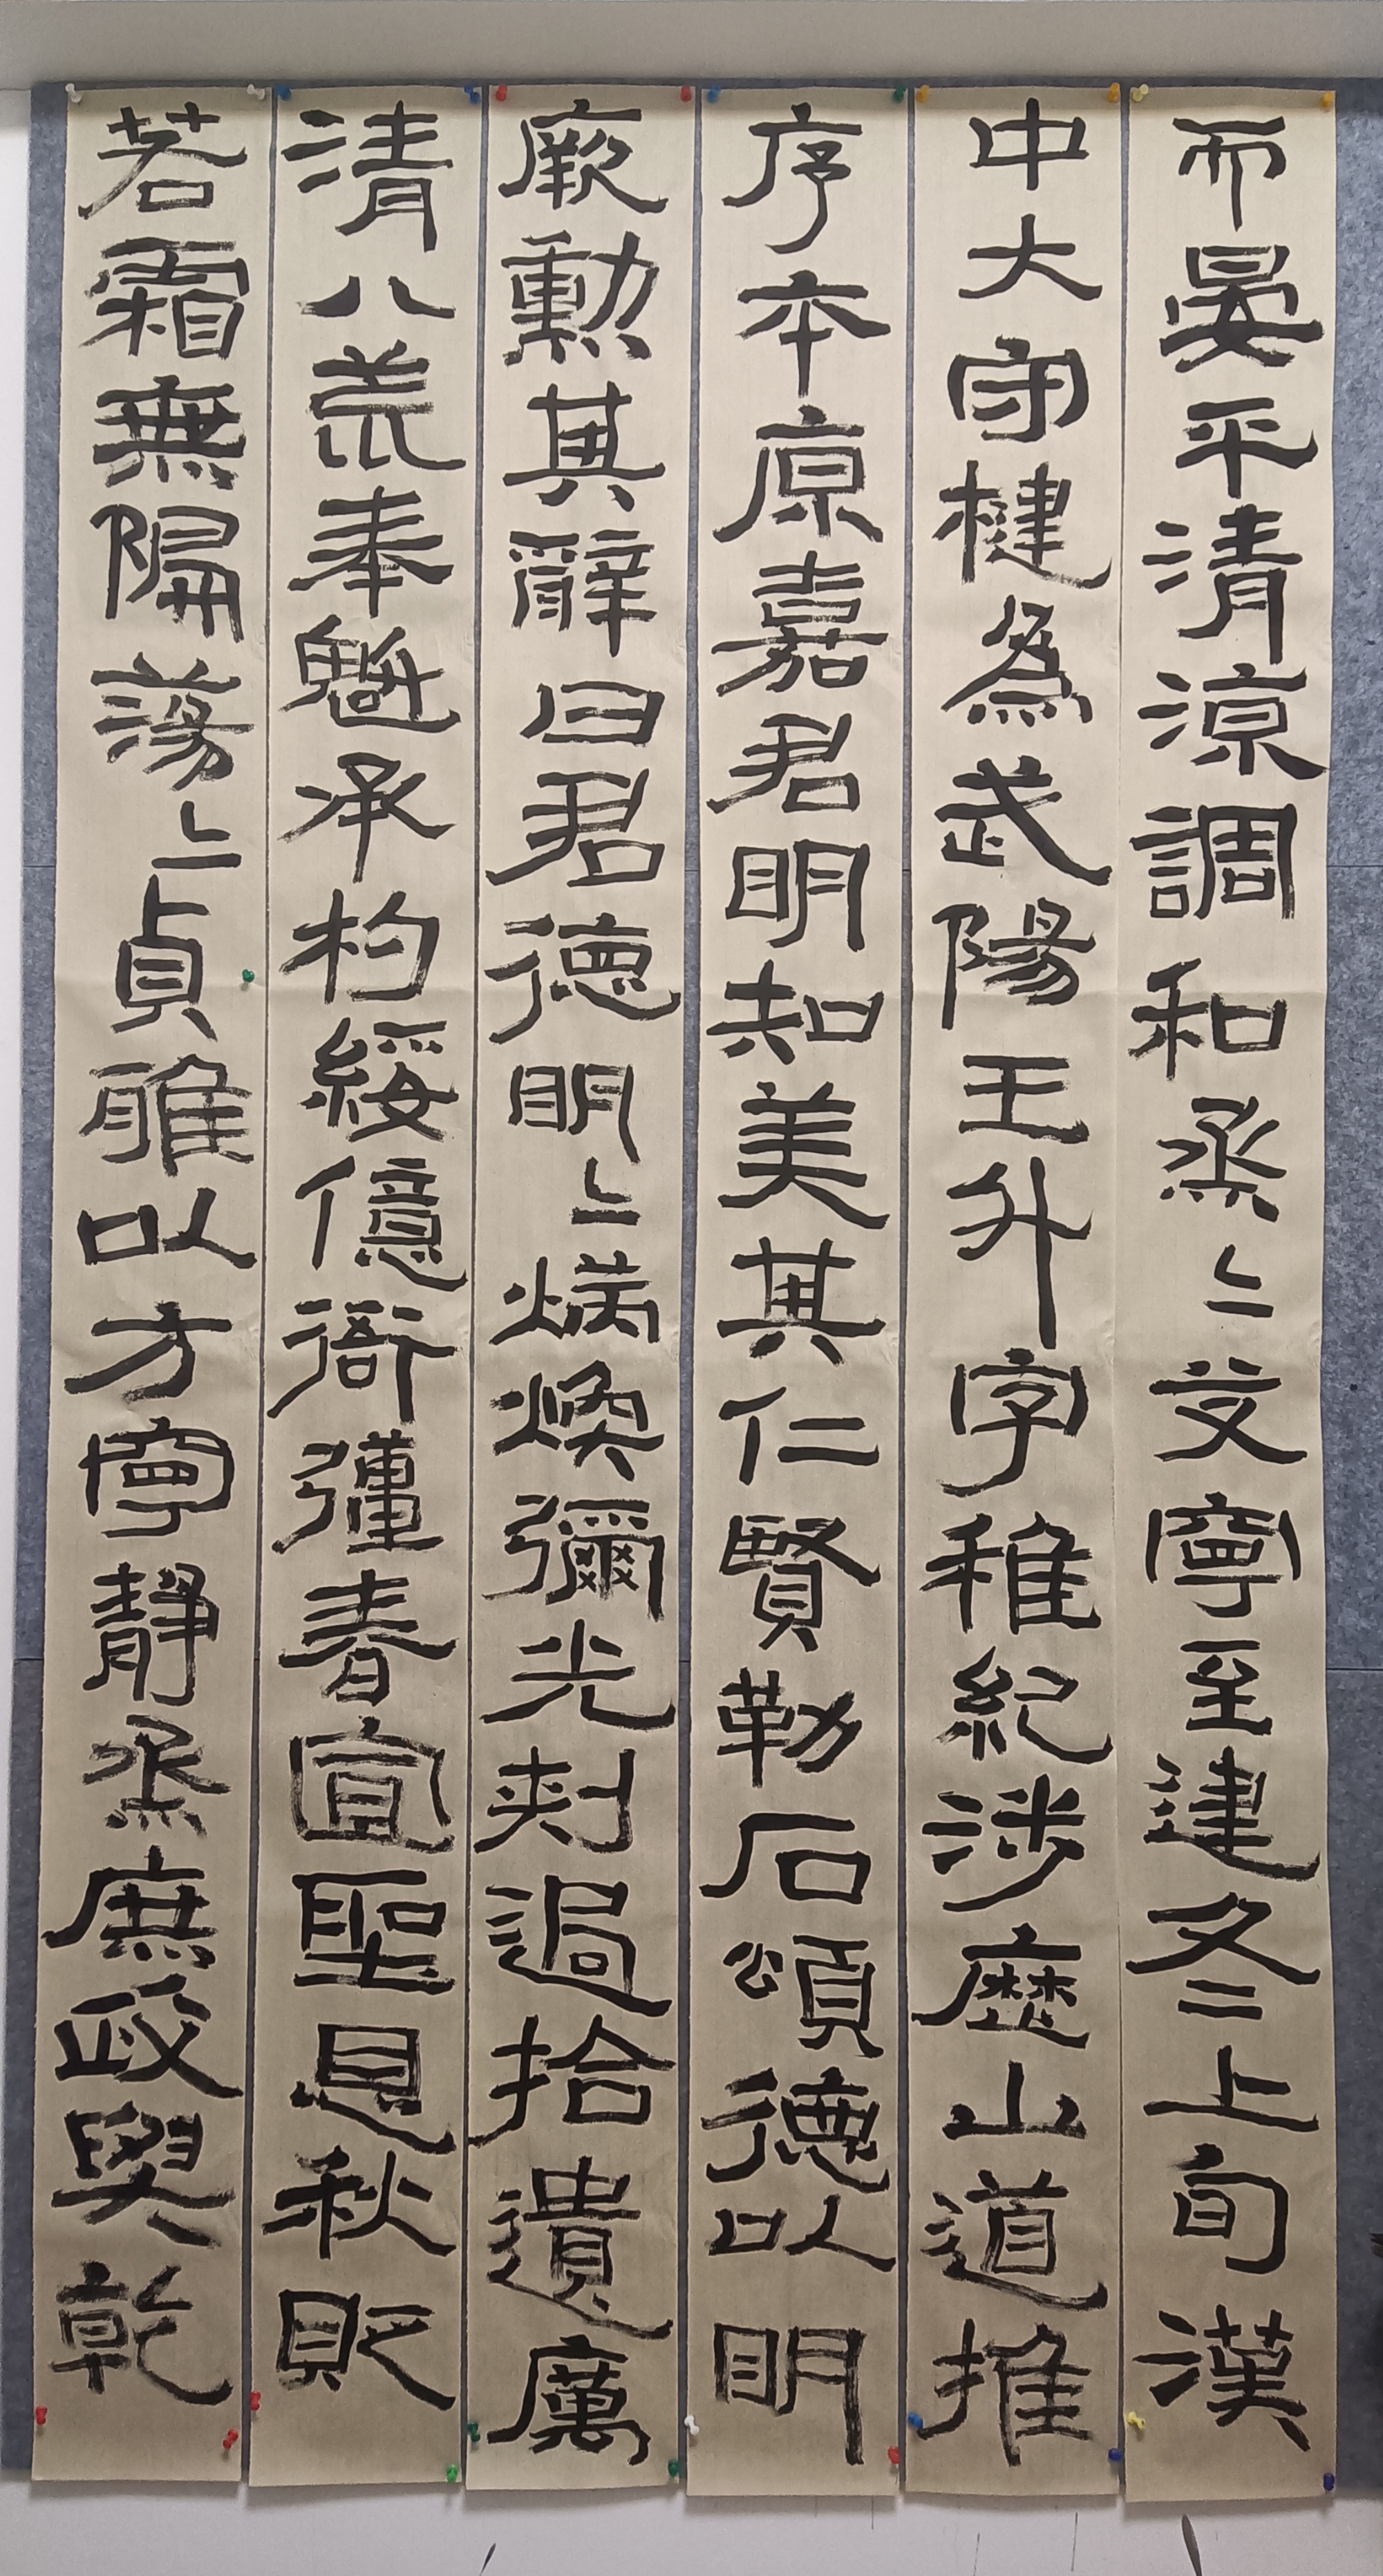 而晏平清涼調和烝〻艾寧至建冬上旬漢
中大守楗為武陽王升字稚紀涉歷山道推
序本原嘉君明知美其仁賢勒石頌德以明
厥勳其辭曰君德明〻炳煥彌光刺過拾遺厲
清八荒奉魁承杓綏億衙彊春宣聖恩秋貶
若霜無偏蕩〻貞雅以方寧靜烝庶政與乾